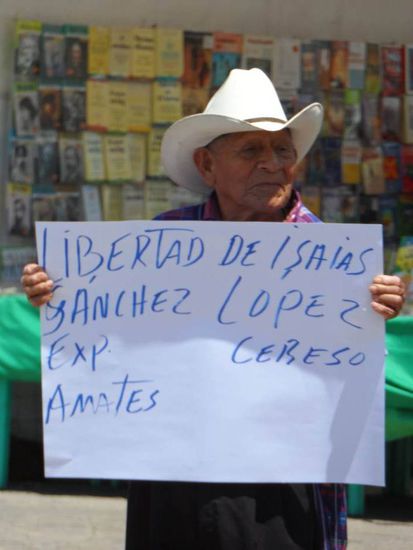 LIBERTAD DE ISAIAS
SANCHEZ LOPEZ
EXP. CEBESO
AMATES